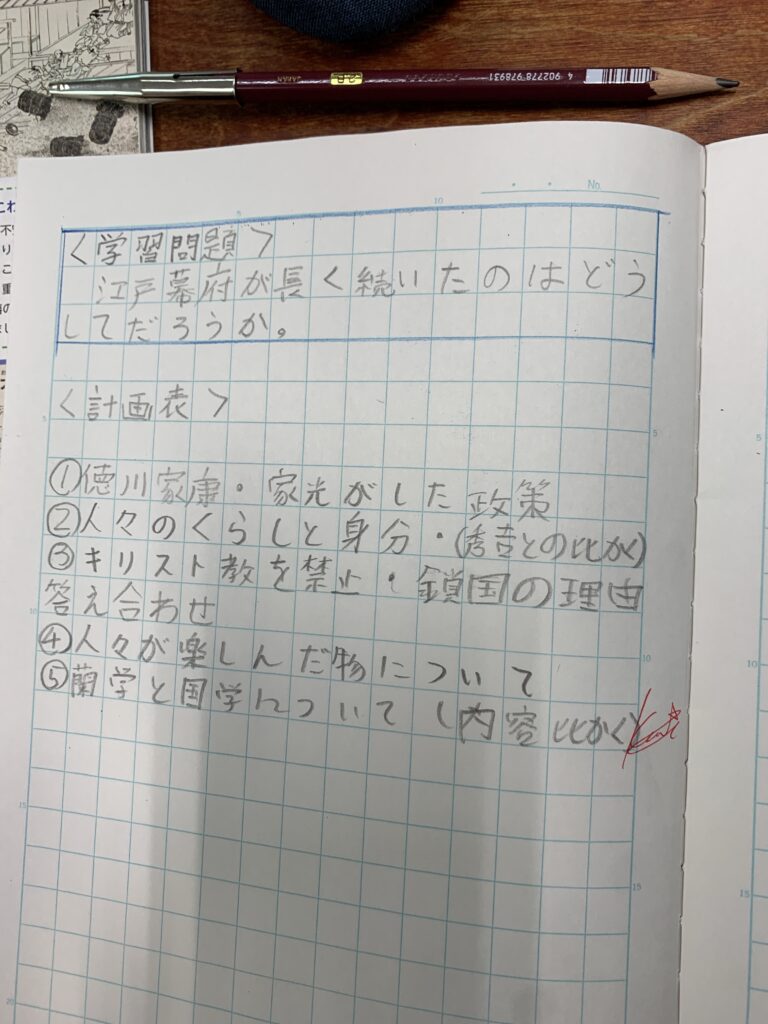 No.
<学習問題>
江戸幕府が長く続いたのはどう
してだろうか。
<計画表>
①徳川家康・家光がした政策
②人々のくらしと身分・(秀吉との比かく)
③キリスト教を禁止・鎖国の理由
答え合わせ
④人々が楽しんだ物について
⑤蘭学と国学について(内容比かく)
4 902778 978931
JAPAN